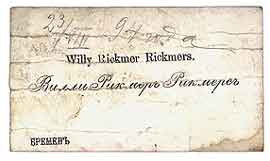 23/VIII 94
Willy Rickmer Rickmers.
Вилли Рикмеръ Рикмерсъ
БРЕМЕНЪ